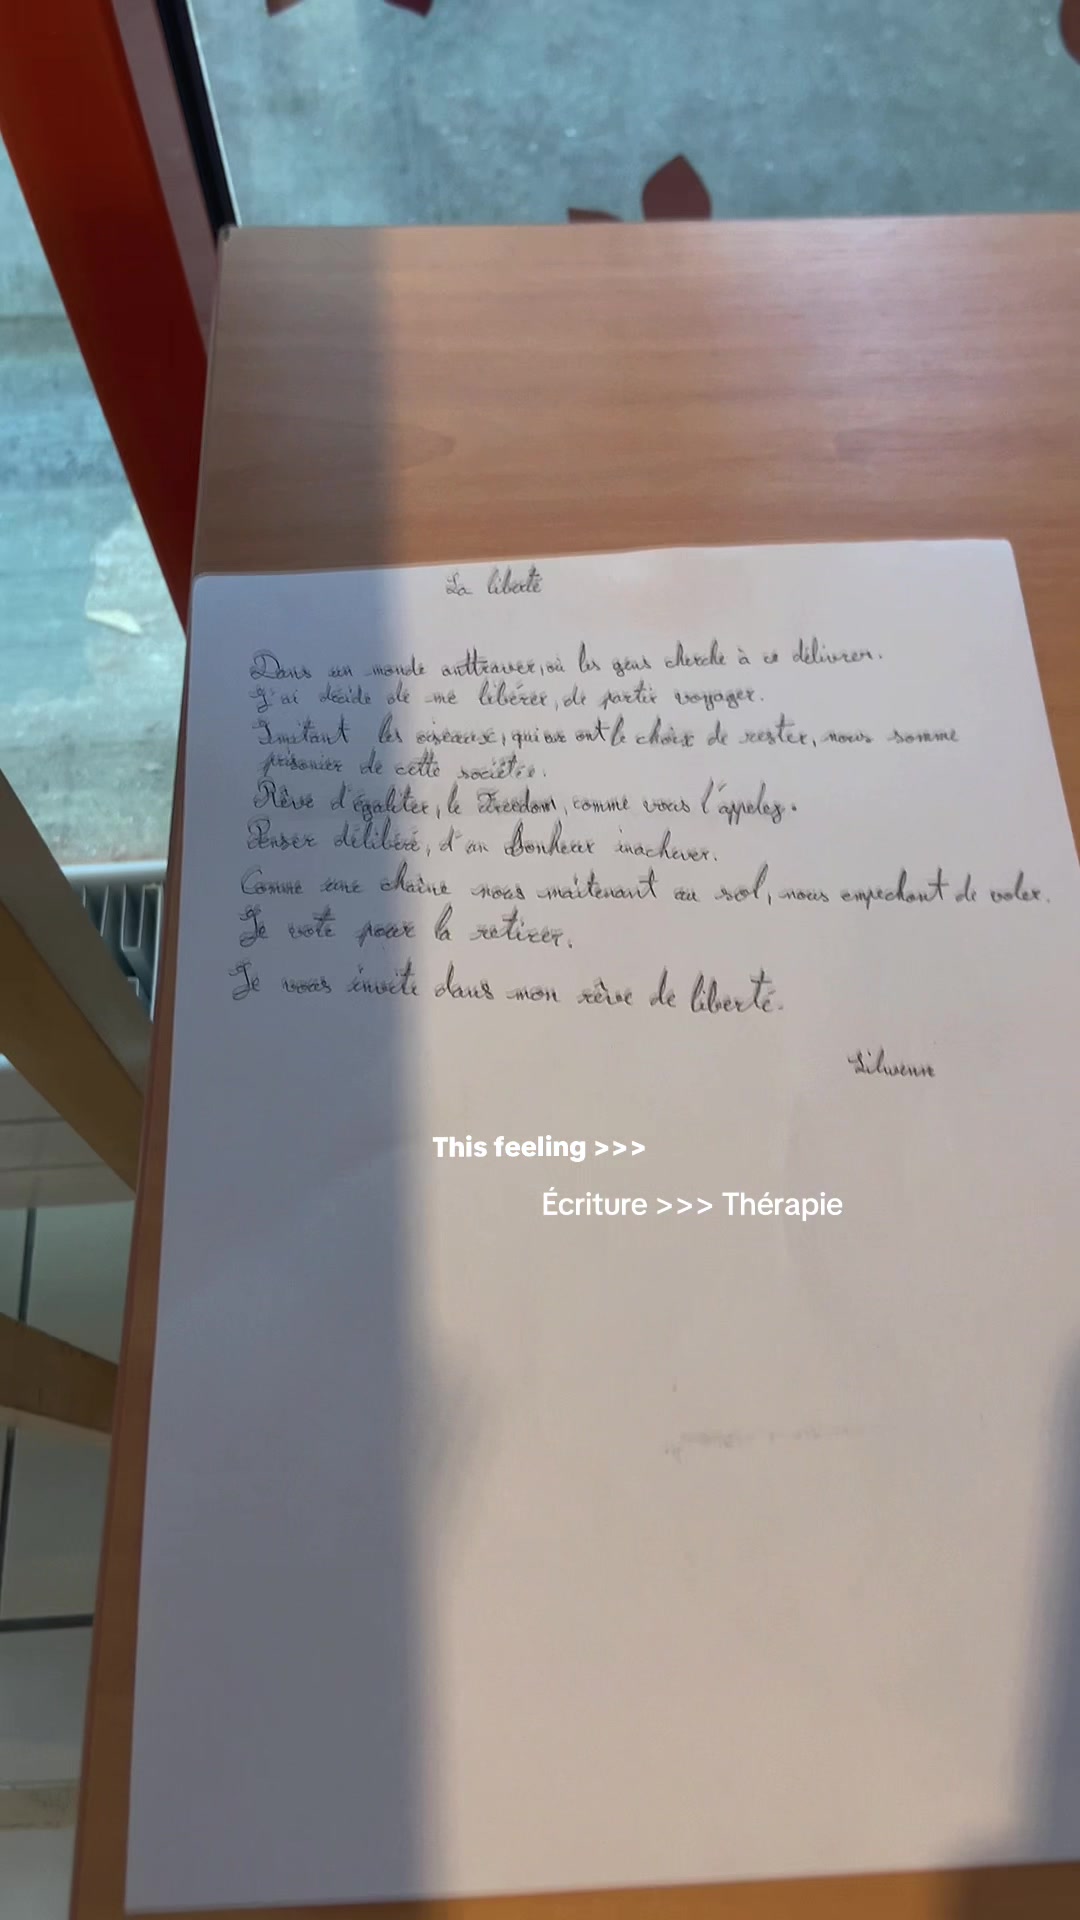 La liberté
Dans un monde anttraver, où les gens cherche à ce délivrer.
J'ai décidé de me libérer, de partir voyager.
Imitant les oiseaux, qui eux ont le choix de rester, nous somme
prisonier de cette sociétée.
Rêve d'égaliter, le Freedom, comme vous l'appelez.
Penser délibéré, d'un bonheur inachever.
Comme une chaîne nous maitenant au sol, nous empechant de voler.
Je vote pour la retirer.
Je vous invite dans mon rêve de liberté.
Lilwenn
This feeling >>>
Écriture >>> Thérapie